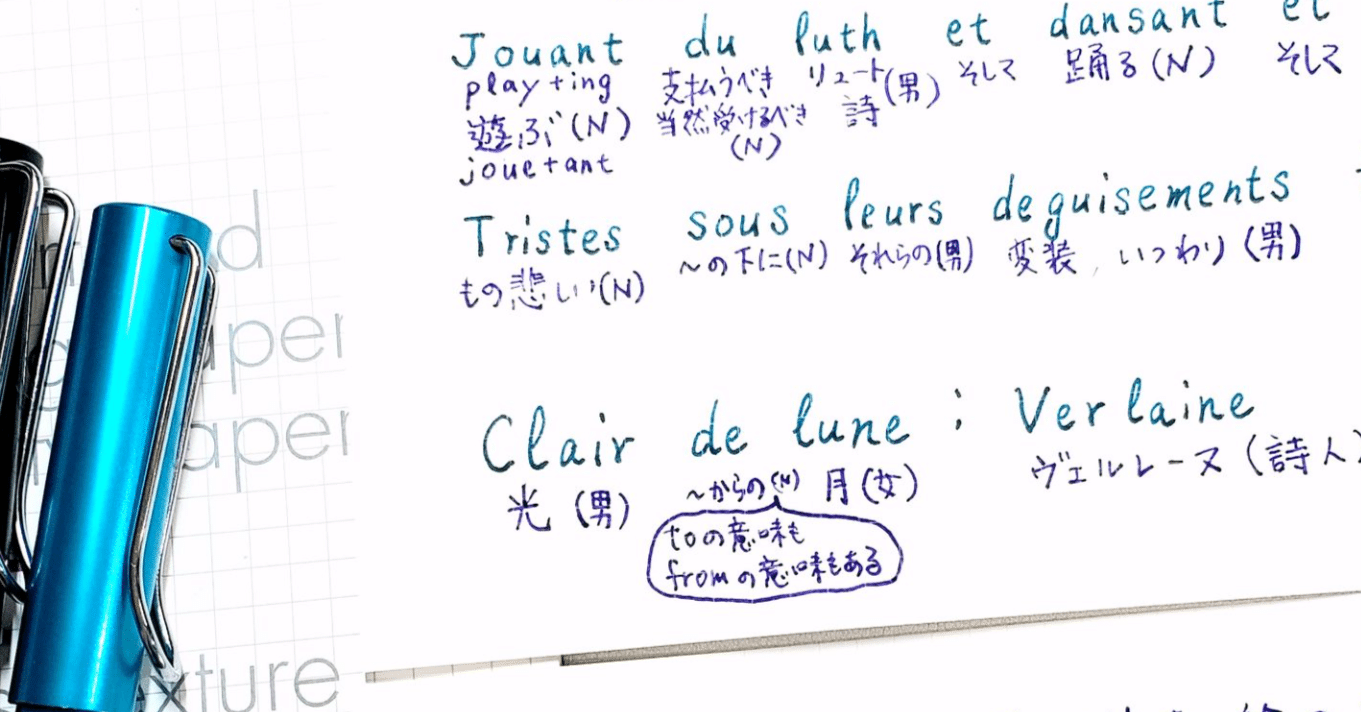 Jouant du luth et dansant et
play+ing 支払うべき リュート(男) そして 踊る(N) そして
遊ぶ(N) 当然受けるべき 詩
jouetant (N)
Tristes sous leurs deguisements
もの悲しい(N) ~の下に(N) それらの(男) 変装, いつわり(男)
Clair de lune : Verlaine
光(男) ~からの(N) 月(女) ヴェルレーヌ(詩人)
toの意味も
fromの意味もある
aper
aper
xture